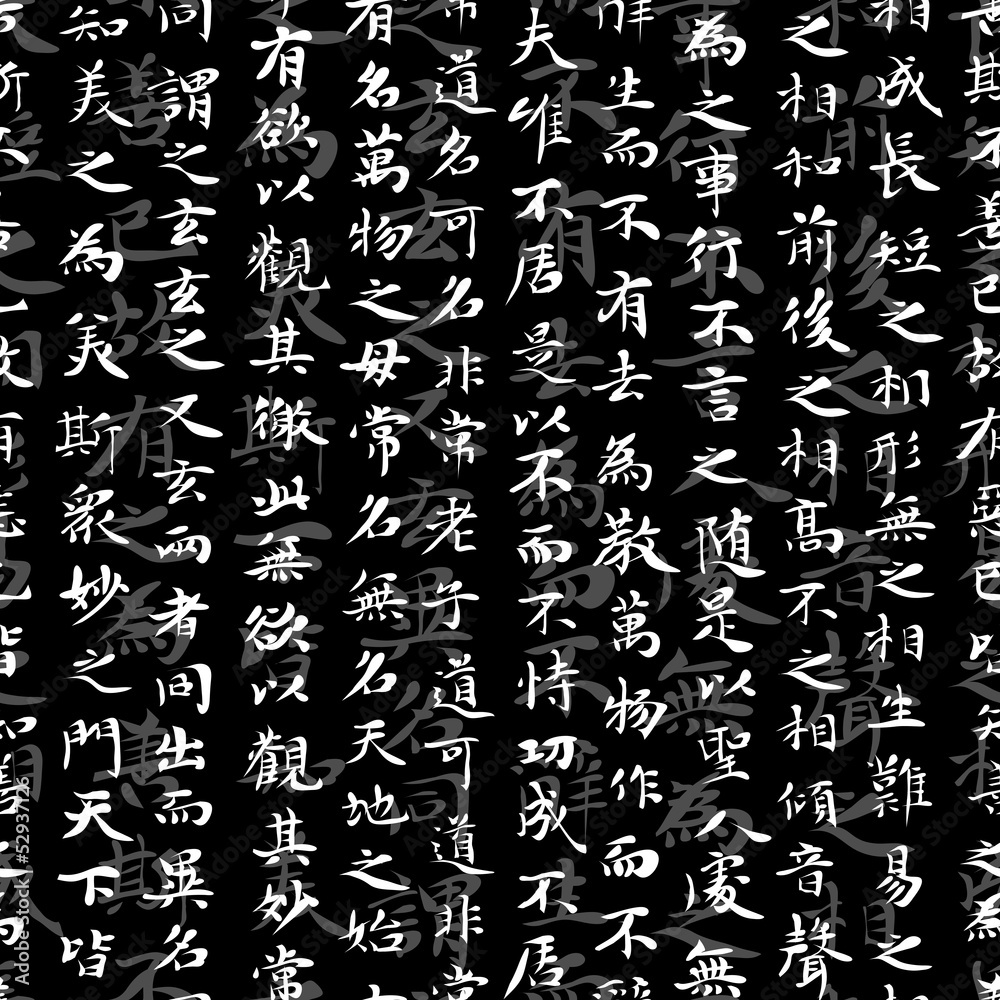 斯不善已故有惡已皆知善之為
相成長短之相形無之相生難易之
之相和前後之相高不之相傾音聲
為之事行不言之随是以聖人處無
生而不有去為教萬物作而不
夫唯不居是以不而不恃功成不居
常道名可名非常老子道可道非常
有名萬物之母常名無名天地之始
有欲以觀其徼此無欲以觀其妙常
同謂之玄玄之又玄兩者同出而異名
知美之為美斯眾妙之門天下皆
Adobe Stock | 52937126